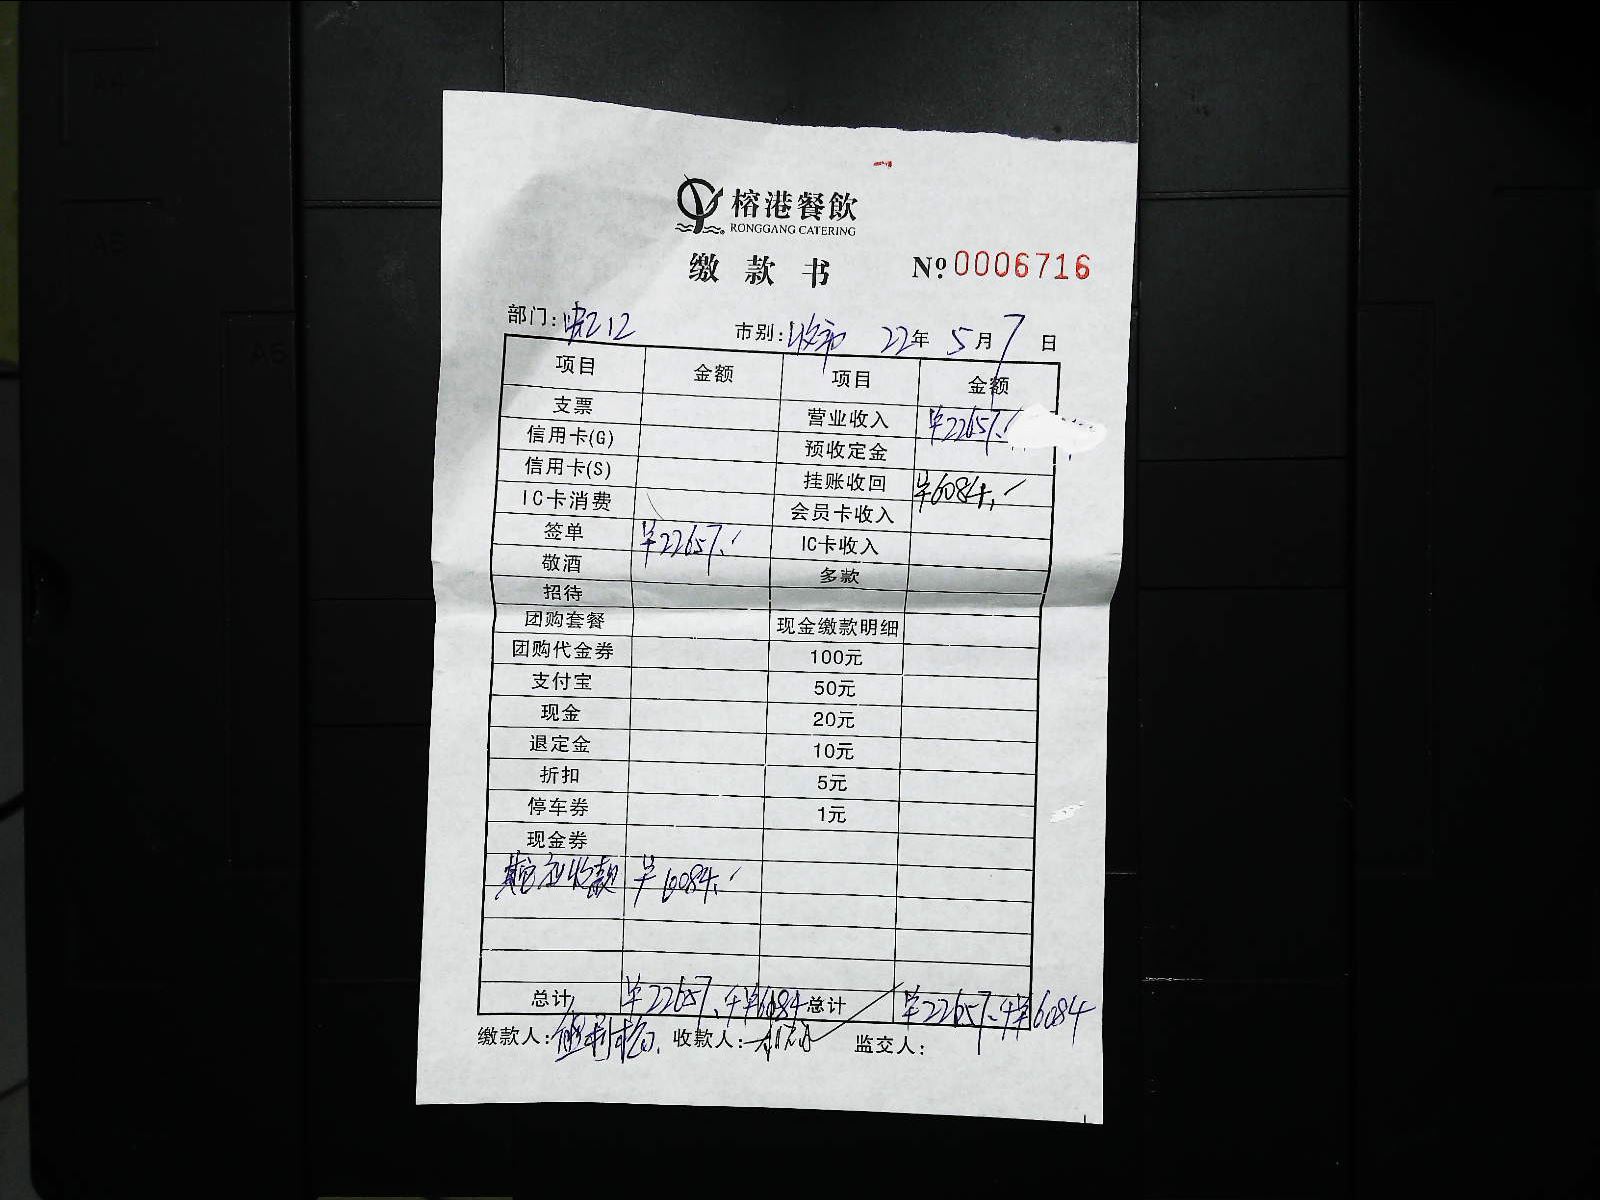 榕港餐飲
RONGGANG CATERING
缴款书 №0006716
部门: 212 市别: 收市 22年 5月 7日
项目 金额 项目 金额
支票 营业收入 ¥22657.
信用卡(G) 预收定金
信用卡(S) 挂账收回 ¥6084.
IC卡消费 会员卡收入
签单 ¥22657. IC卡收入
敬酒 多款
招待
团购套餐 现金缴款明细
团购代金券 100元
支付宝 50元
现金 20元
退定金 10元
折扣 5元
停车券 1元
现金券
其它应收款 ¥6084.
总计 ¥22657.+¥6084 总计 ¥22657.+¥6084
缴款人: 收款人: 监交人:
A4
A5
A6